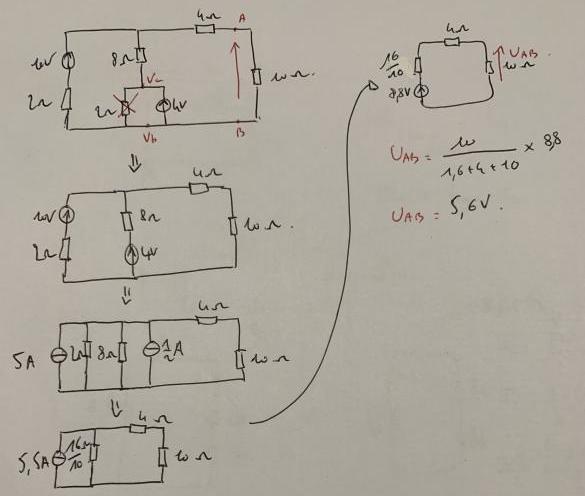 4Ω A
10V 8Ω 10Ω.
Va
2Ω 2Ω 4V
Vb B
⇓
4Ω
10V 8Ω 10Ω.
2Ω 4V
⇓
4Ω
5A 2Ω 8Ω 1/2 A 10Ω
⇓
4Ω
5,5A 16Ω/10 10Ω
4Ω
16/10 UAB. 10Ω
8,8V
UAB = 10/(1,6+4+10) × 8,8
UAB = 5,6V.